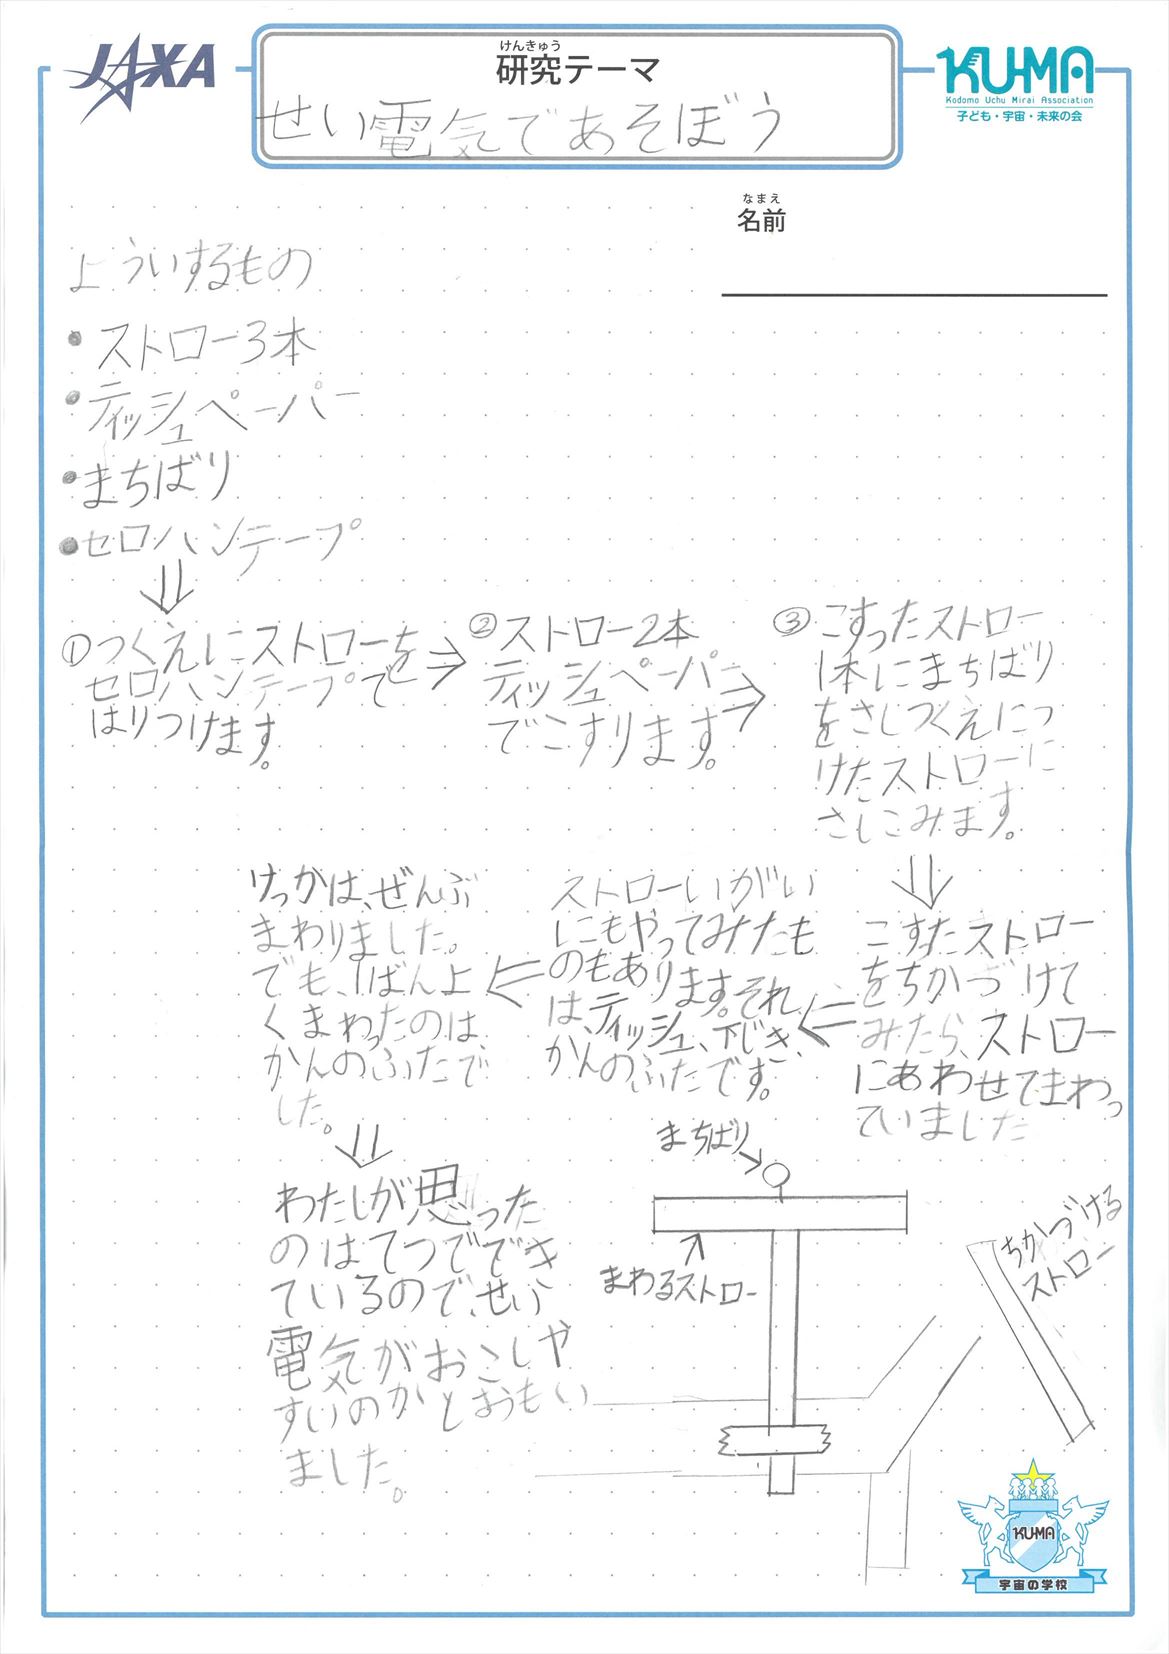 JAXA
けんきゅう
研究テーマ
せい電気であそぼう
KU-MA
Kodomo Uchu Mirai Association
子ども・宇宙・未来の会
なまえ
名前
よういするもの
• ストロー3本
• ティッシュペーパー
• まちばり
• セロハンテープ
⇓
①つくえにストローを
セロハンテープで
はりつけます。
⇒
②ストロー2本
ティッシュペーパー
でこすります。
⇒
③こすったストロー
1本にまちばり
をさしつくえにつ
けたストローに
さしこみます。
⇓
こすたストロー
をちかづけて
みたら、ストロー
にあわせてまわっ
ていました
⇐
ストローいがい
にもやってみたも
のもあります。それ
は、ティッシュ、下じき、
かんのふたです。
⇐
けっかは、ぜんぶ
まわりました。
でも、1ばんよ
くまわったのは
かんのふたで
した。
⇓
わたしが思った
のはてつででき
ているので、せい
電気がおこしや
すいのかとおうもい
ました。
まちばり
まわるストロー
ちかづける
ストロー
KU-MA
宇宙の学校